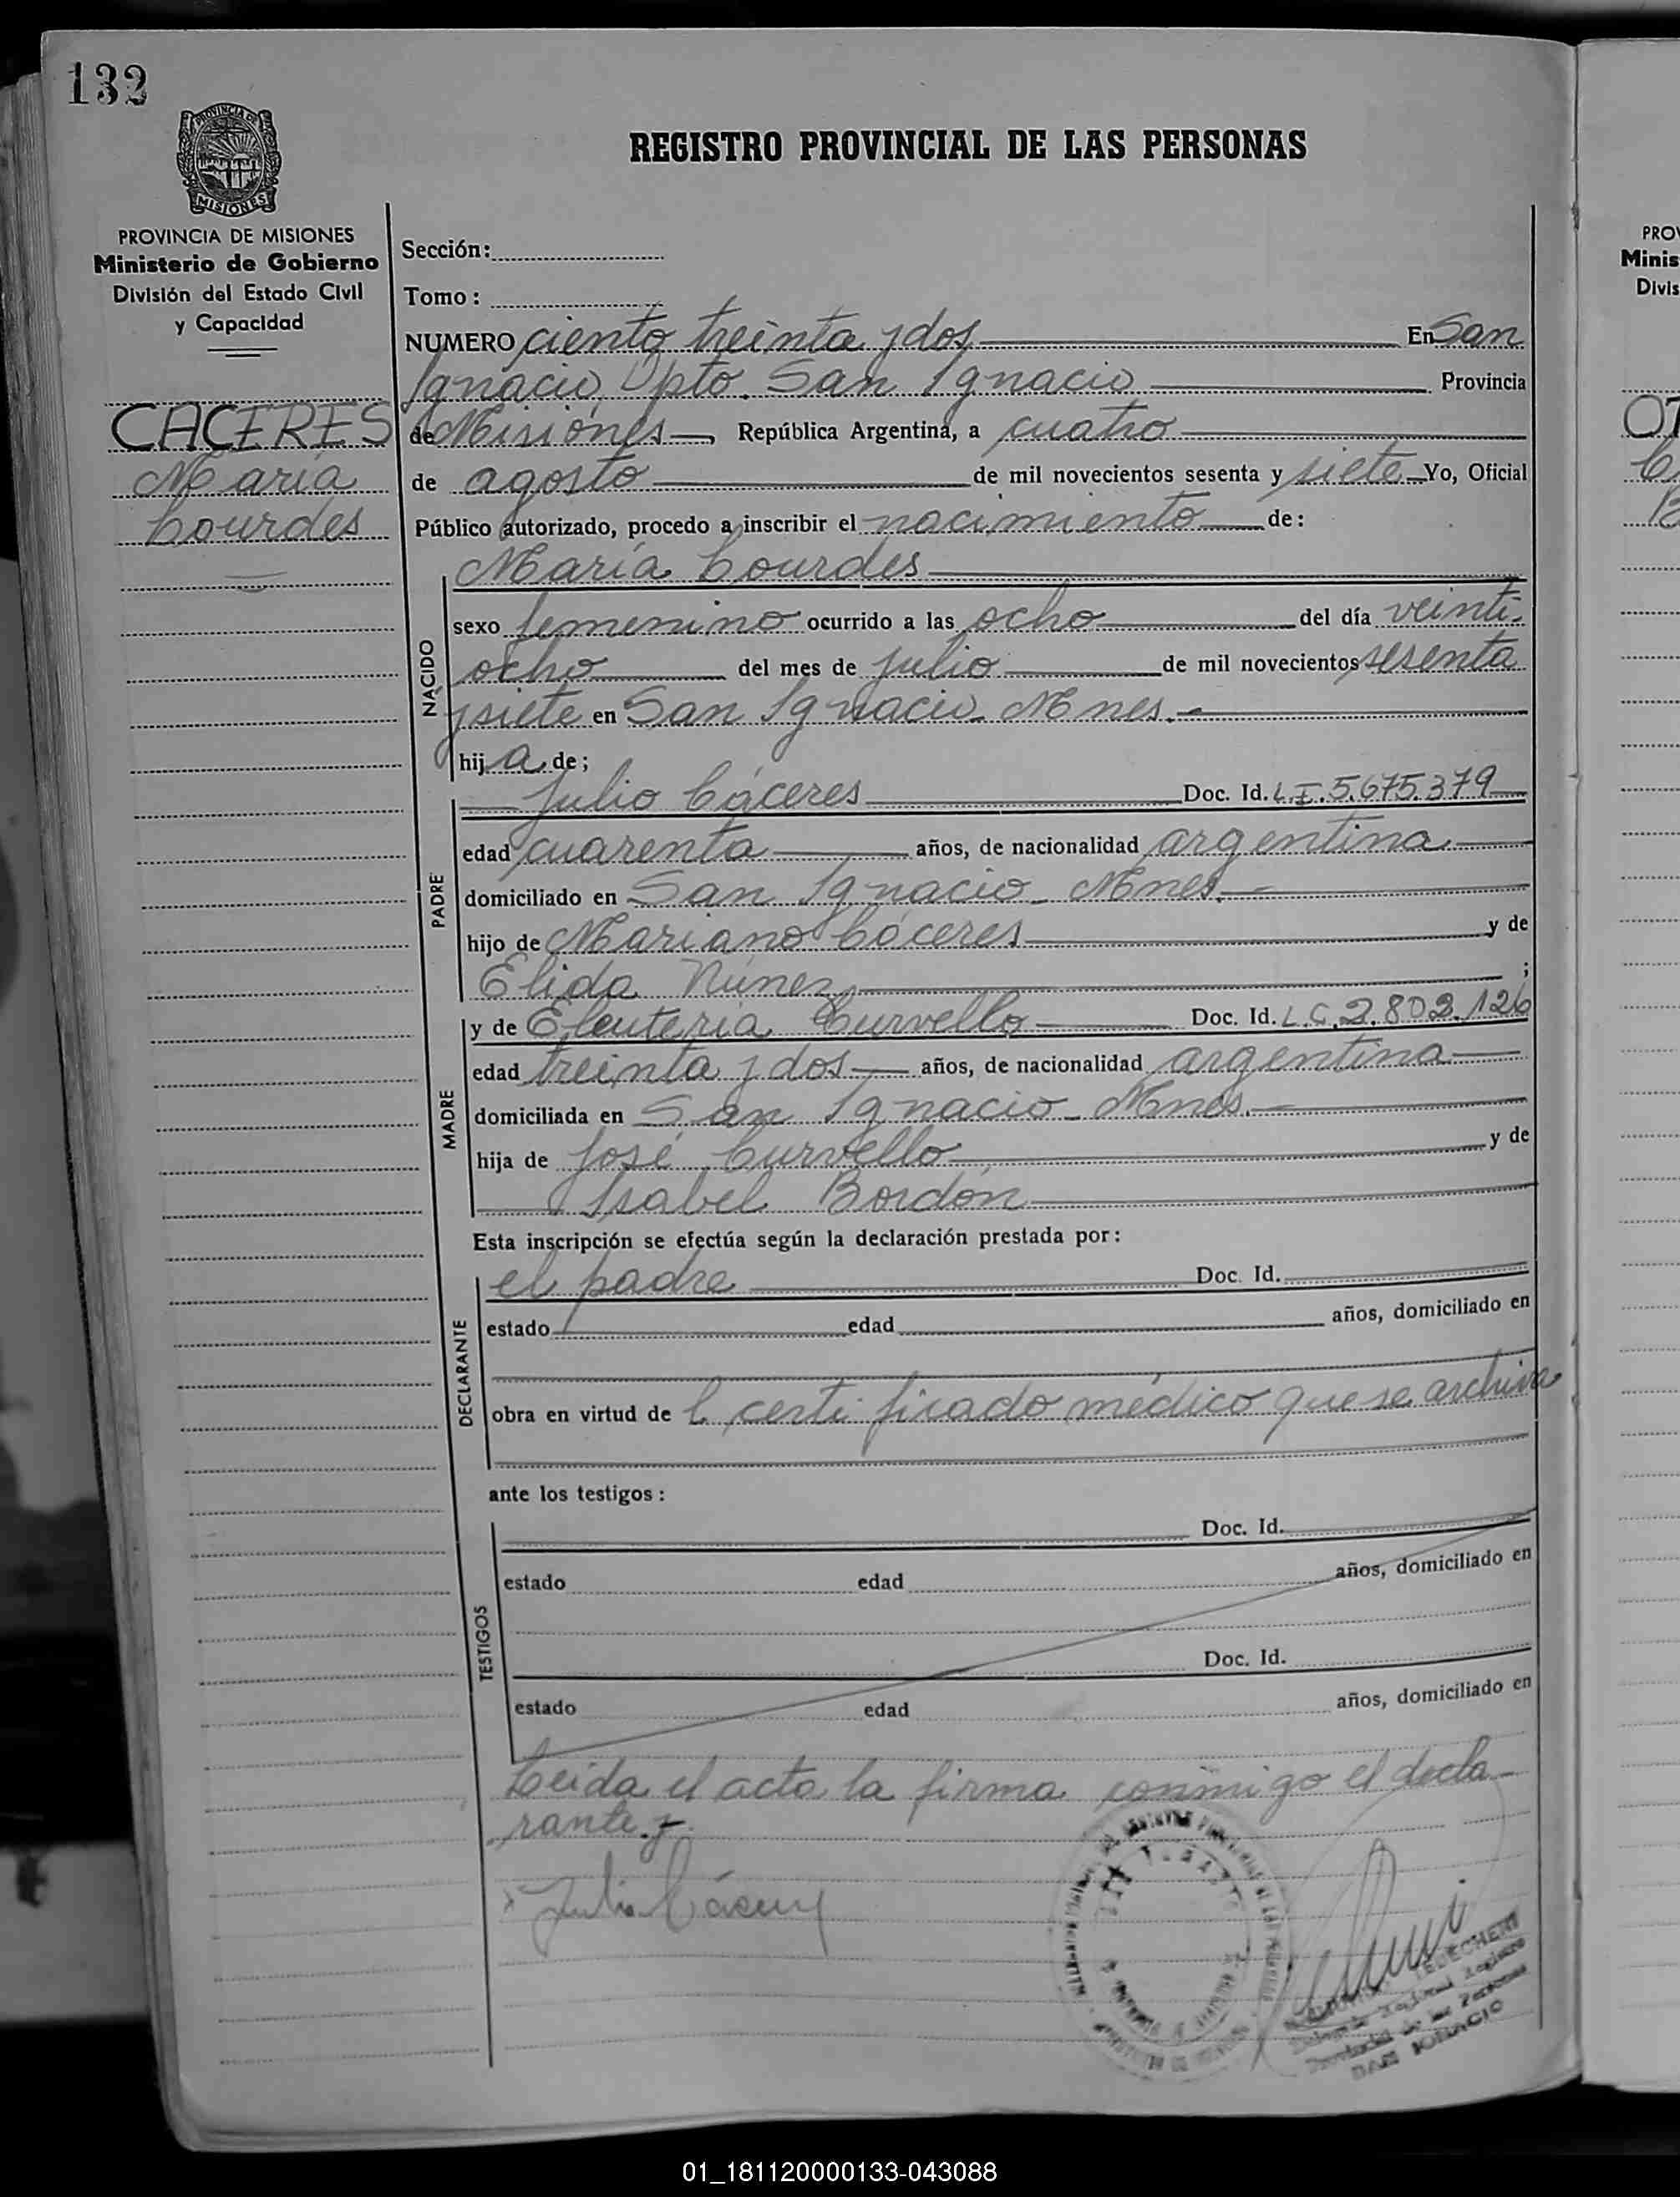 132
PROVINCIA DE
MISIONES
REGISTRO PROVINCIAL DE LAS PERSONAS
PROVINCIA DE MISIONES
Ministerio de Gobierno
División del Estado Civil
y Capacidad
CACERES
María
Lourdes
Sección:
Tomo:
NUMERO ciento treinta y dos En San
Ignacio, Dpto. San Ignacio Provincia
de Misiones, República Argentina, a cuatro
de agosto de mil novecientos sesenta y siete Yo, Oficial
Público autorizado, procedo a inscribir el nacimiento de:
María Lourdes
NACIDO
sexo femenino ocurrido a las ocho del día veinti-
ocho del mes de julio de mil novecientos sesenta
y siete en San Ignacio - Mnes.-
hija de;
PADRE
Julio Cáceres Doc. Id. L.E. 5.675.379
edad cuarenta años, de nacionalidad argentina
domiciliado en San Ignacio - Mnes.-
hijo de Mariano Cáceres y de
Elida Núnez ;
MADRE
y de Eleuteria Curvello Doc. Id. L.C. 2.802.126
edad treinta y dos años, de nacionalidad argentina
domiciliada en San Ignacio - Mnes.-
hija de José Curvello y de
Isabel Bordón
Esta inscripción se efectúa según la declaración prestada por:
DECLARANTE
el padre Doc. Id.
estado edad años, domiciliado en
obra en virtud de l certificado médico que se archiva
ante los testigos:
TESTIGOS
Doc. Id.
estado edad años, domiciliado en
Doc. Id.
estado edad años, domiciliado en
Leida el acta la firma conmigo el decla-
rante.-
Julio Cáceres
SAN IGNACIO
PROV
Minis
Divis
01_181120000133-043088